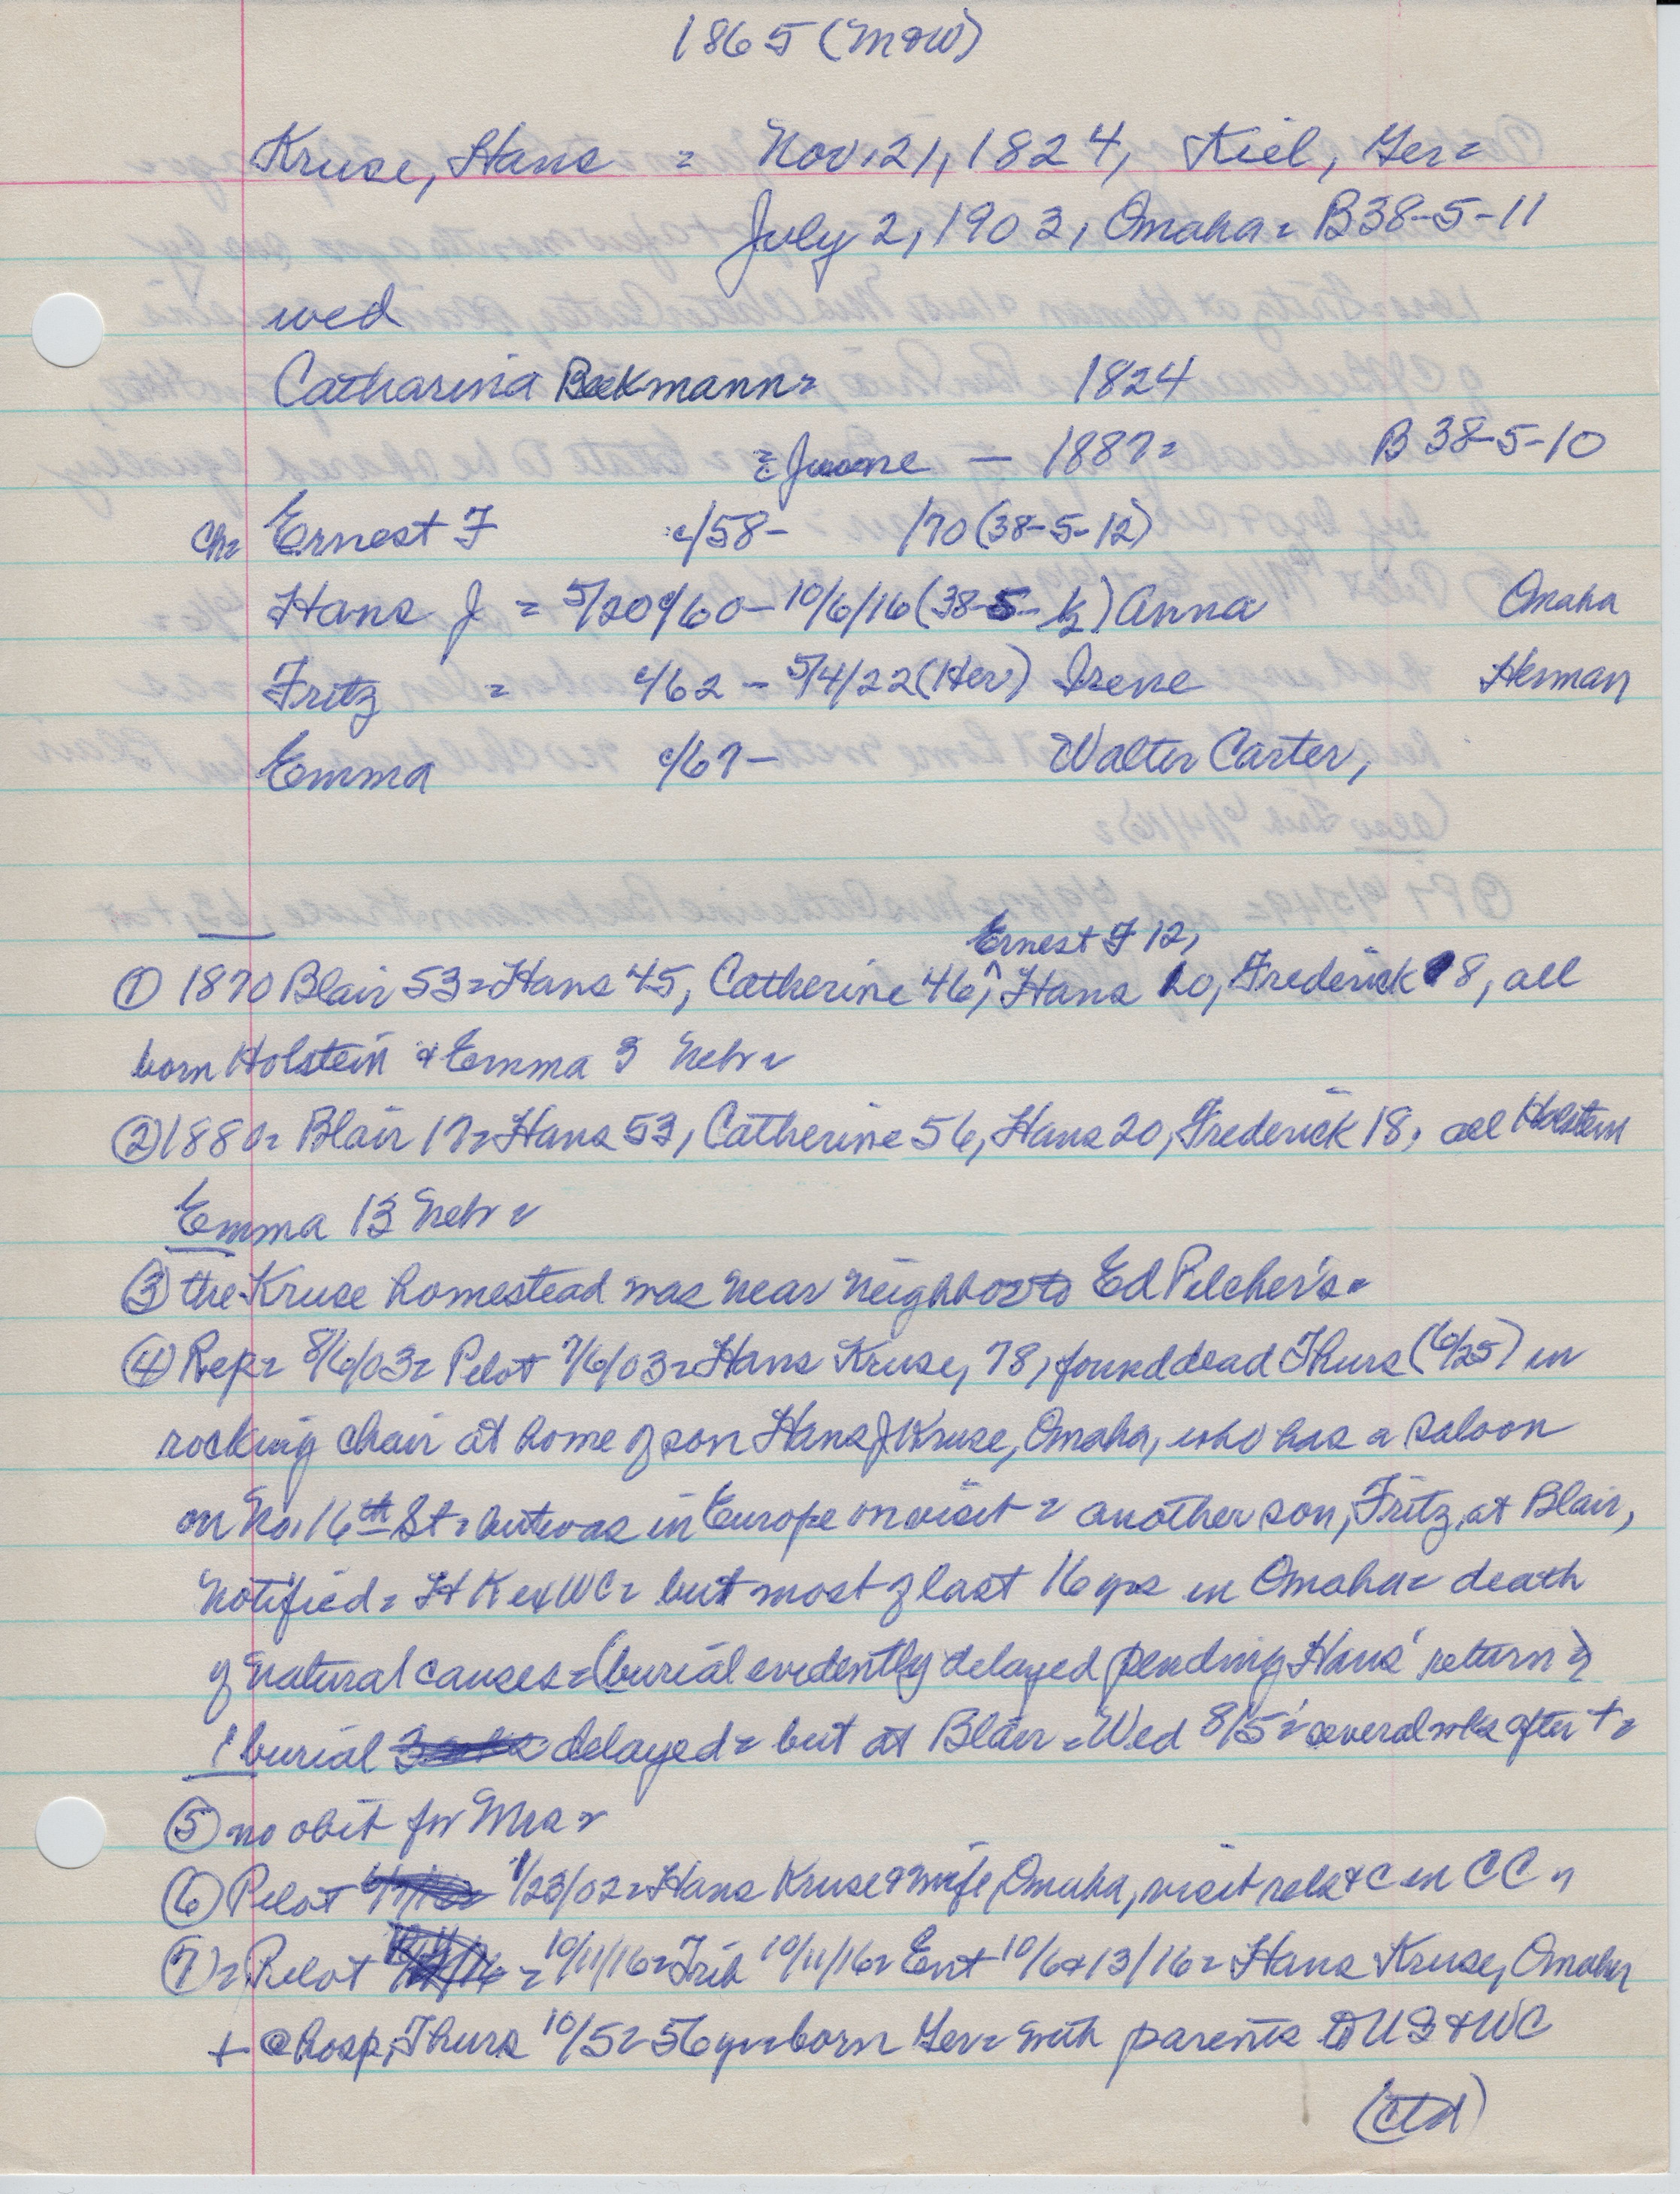 1865 (M&W)
Kruse, Hans = Nov. 21, 1824, Kiel, Ger=
July 2, 1903, Omaha= B38-5-11
wed
Catharina Beekmann= 1824
= - 1887= B 38-5-10
Ch= Ernest F c/58- /70 (38-5-12)
Hans J = 5/20 c/60 - 10/6/16 (38-5- ) Anna Omaha
Fritz = c/62 - 5/4/22 (Her) Irene Herman
Emma c/67- Walter Carter,
Ernest F 12,
① 1870 Blair 53= Hans 45, Catherine 46, ^ Hans 10, Frederick 8, all
born Holstein & Emma 3 Nebr=
② 1880= Blair 17= Hans 53, Catherine 56, Hans 20, Frederick 18, all Holstein
Emma 13 Nebr=
③ the Kruse homestead was near neighbor to Ed Pilcher's=
④ Rep= 8/6/03= Pilot 7/6/03= Hans Kruse, 78, found dead Thurs (6/25) in
rocking chair at home of son Hans J Kruse, Omaha, who has a saloon
on No. 16th St= but was in Europe on visit= another son, Fritz, at Blair,
notified= H K ex WC= but most of last 16 yrs in Omaha= death
of natural causes= (burial evidently delayed pending Hans' return=)
burial delayed= but at Blair= Wed 8/5= several wks after +=
⑤ no obit for Mrs=
⑥ Pilot 1/23/02= Hans Kruse & wife, Omaha, visit rels &c in CC=
⑦= Pilot = 10/11/16= Trib 10/11/16= Ent 10/6 & 13/16= Hans Kruse, Omaha
+ @ hosp, Thurs 10/5= 56 y= born Ger= with parents to US & WC
(ctd)